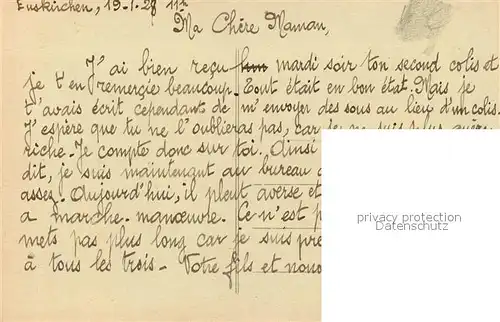 Euskirchen, 19-1-28 11h
Ma Chère Maman,
J'ai bien reçu mardi soir ton second colis et
je t'en remercie beaucoup. Tout était en bon état. Mais je
t'avais écrit cependant de m'envoyer des sous au lieu d'un colis.
J'espère que tu ne l'oublieras pas, car je ne suis plus guère
riche. Je compte donc sur toi. Ainsi
dit, je suis maintenant au bureau
assez. Aujourd'hui, il pleut averse et
a marche-manœuvre. Ce n'est p
mets pas plus long car je suis pre
à tous les trois. Votre fils et nou
privacy protection
Datenschutz